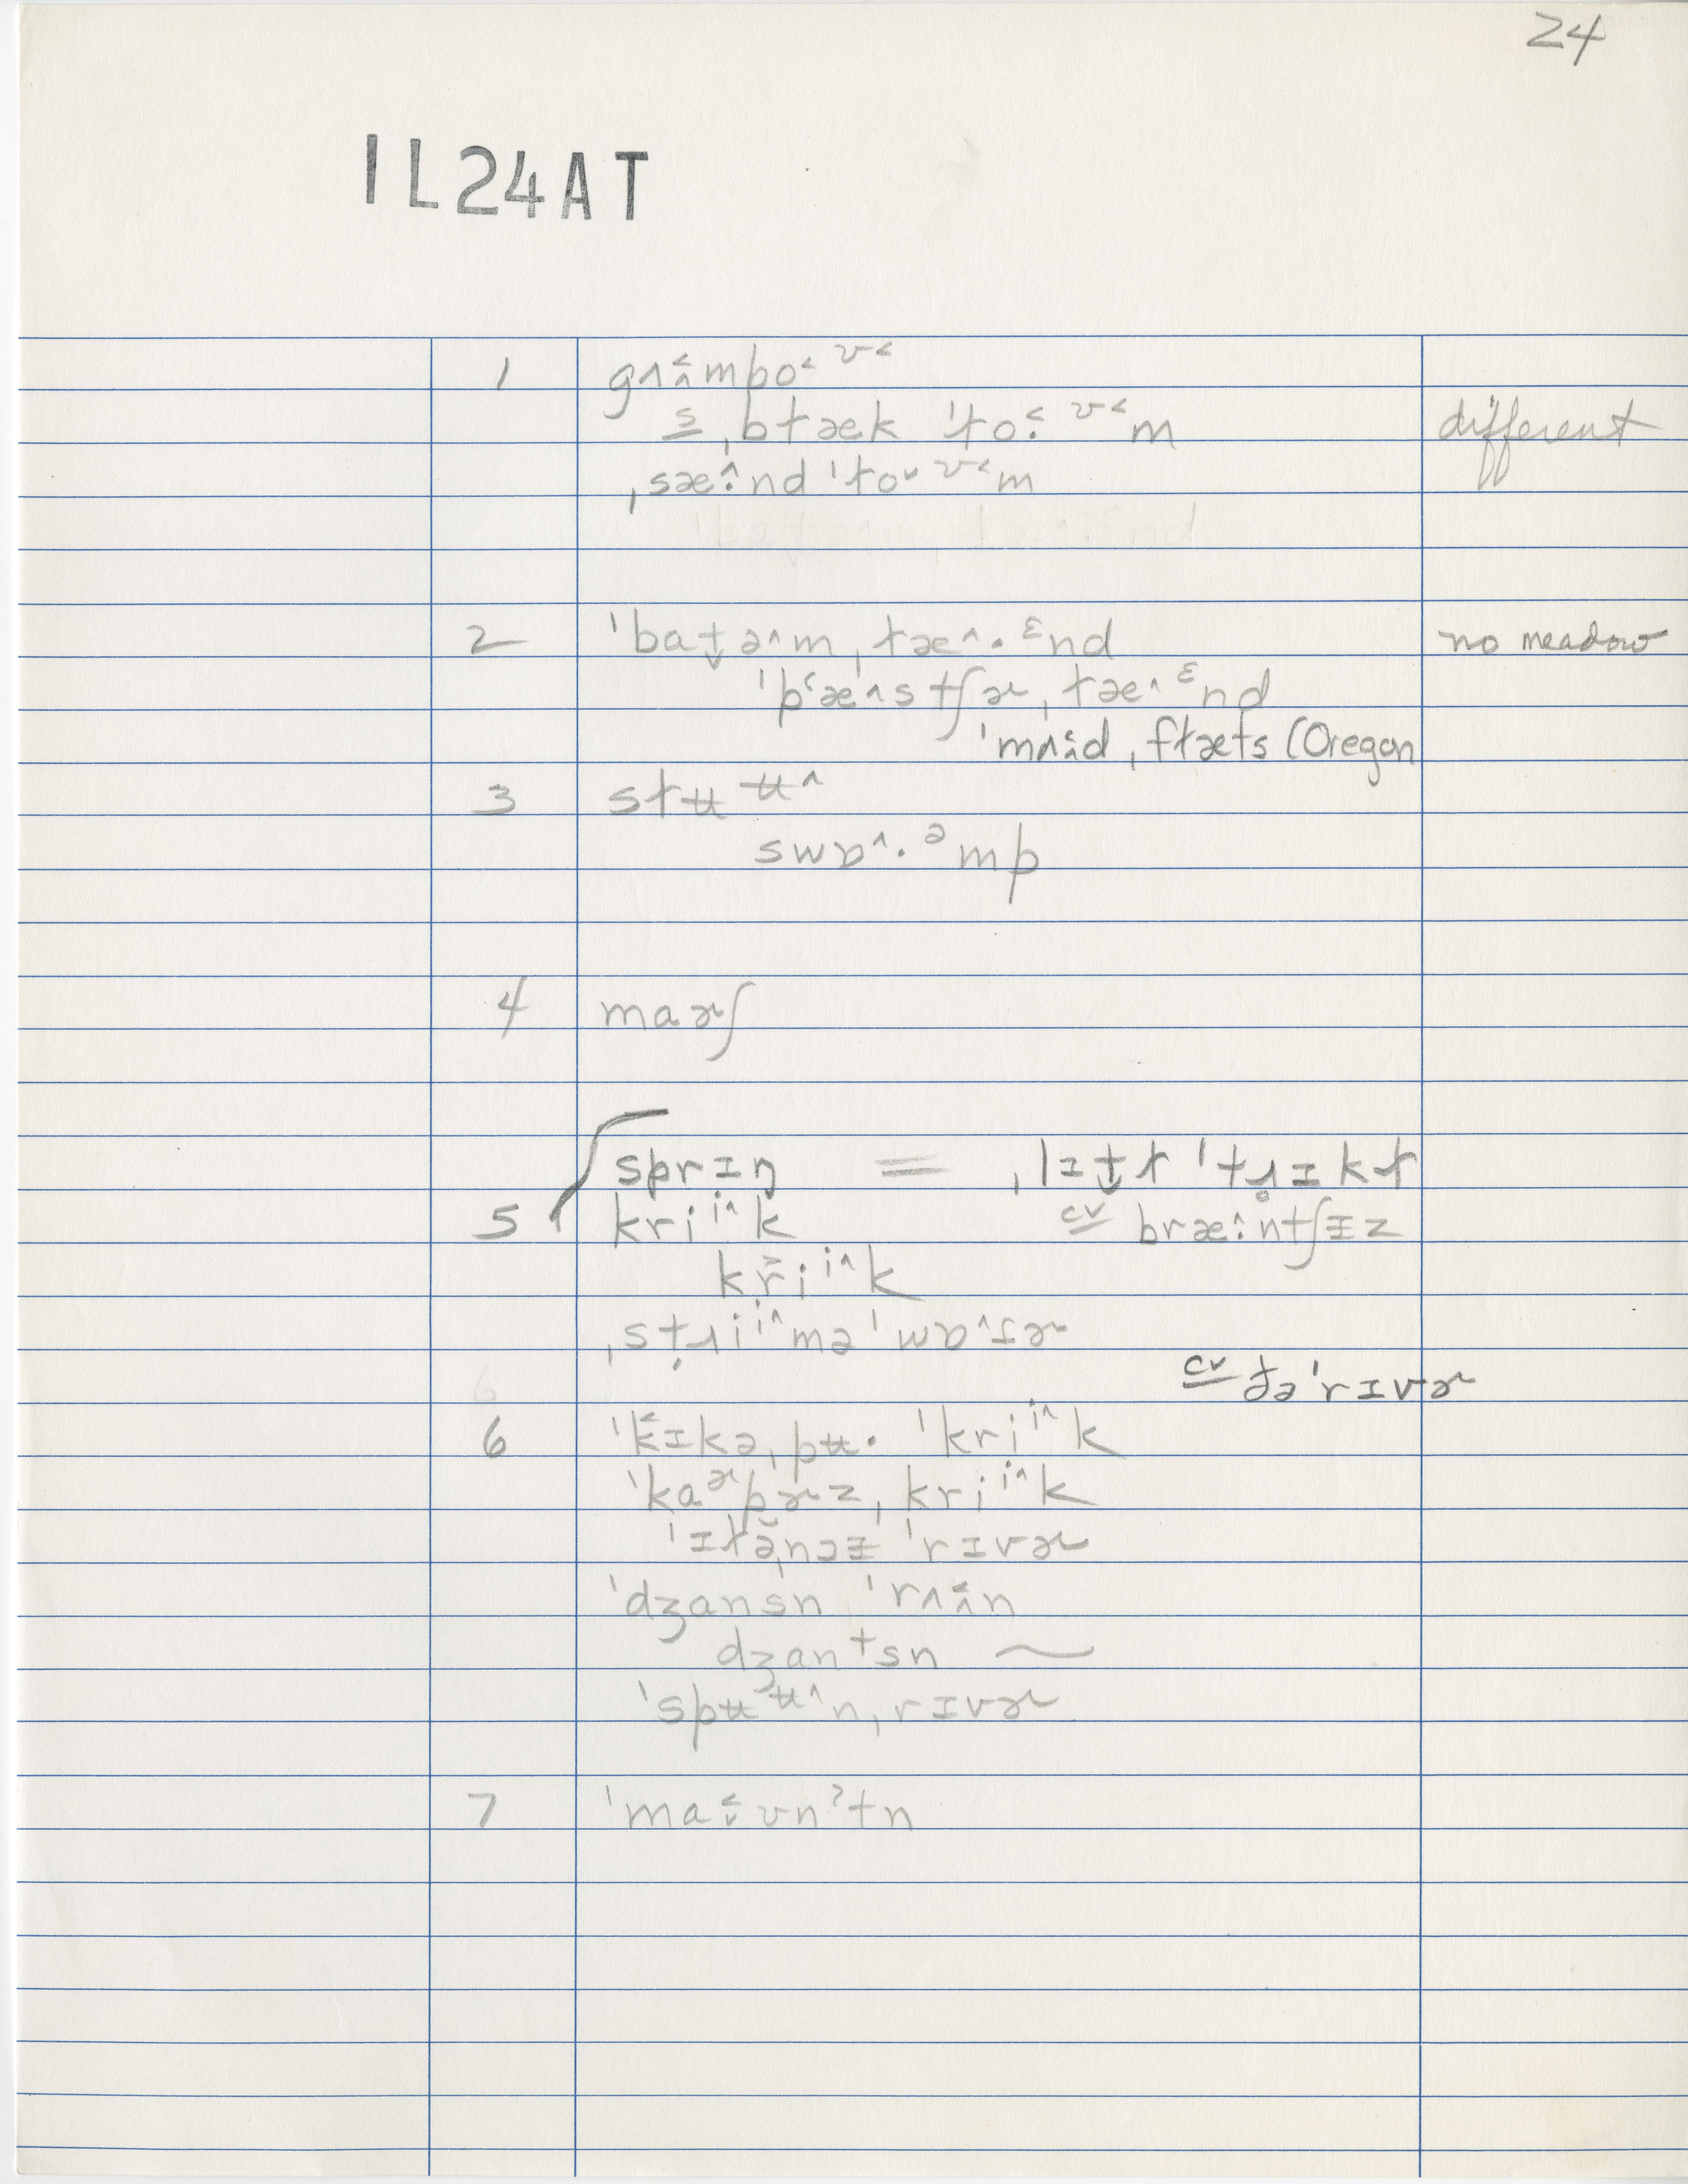 24
IL24AT
1 gʌ˂ɪ̯mbo˂ ʊ˂
s ˌbɫæk ˈɫo˂· ʊ˂m different
ˌsæ^·nd ˈɫo˅ ʊ˂m
2 ˈbat̬ə^m ˌɫæ^· ɛnd no meadow
ˈp˂æ^stʃɚ ˌɫæ^ ɛnd
ˈmʌ^·d ˌfɫæts (Oregon
3 sɫʉ ʉ^
swɒ^· əmp
4 maɚʃ
sprɪŋ = ˌlɪt̬ɫ ˈtɹ̥ɪkɫ
5 kri i^k cv bræ^·ntʃɨz
kři i^k
ˌstɹi i^mə ˈwɒ^ɾɚ
cv ðə ˈrɪvɚ
6 ˈk˂ɪkəˌpʉ· ˈkri i^k
ˈkaɚpɚz ˌkri i^k
ˈɪɫə̆ˌnɔɨ ˈrɪvɚ
ˈdʒansn ˈrʌ˂^n
dʒantsn ~
ˈspʉ ʉ^n ˌrɪvɚ
7 ˈma˂˅ ʊnˀtn